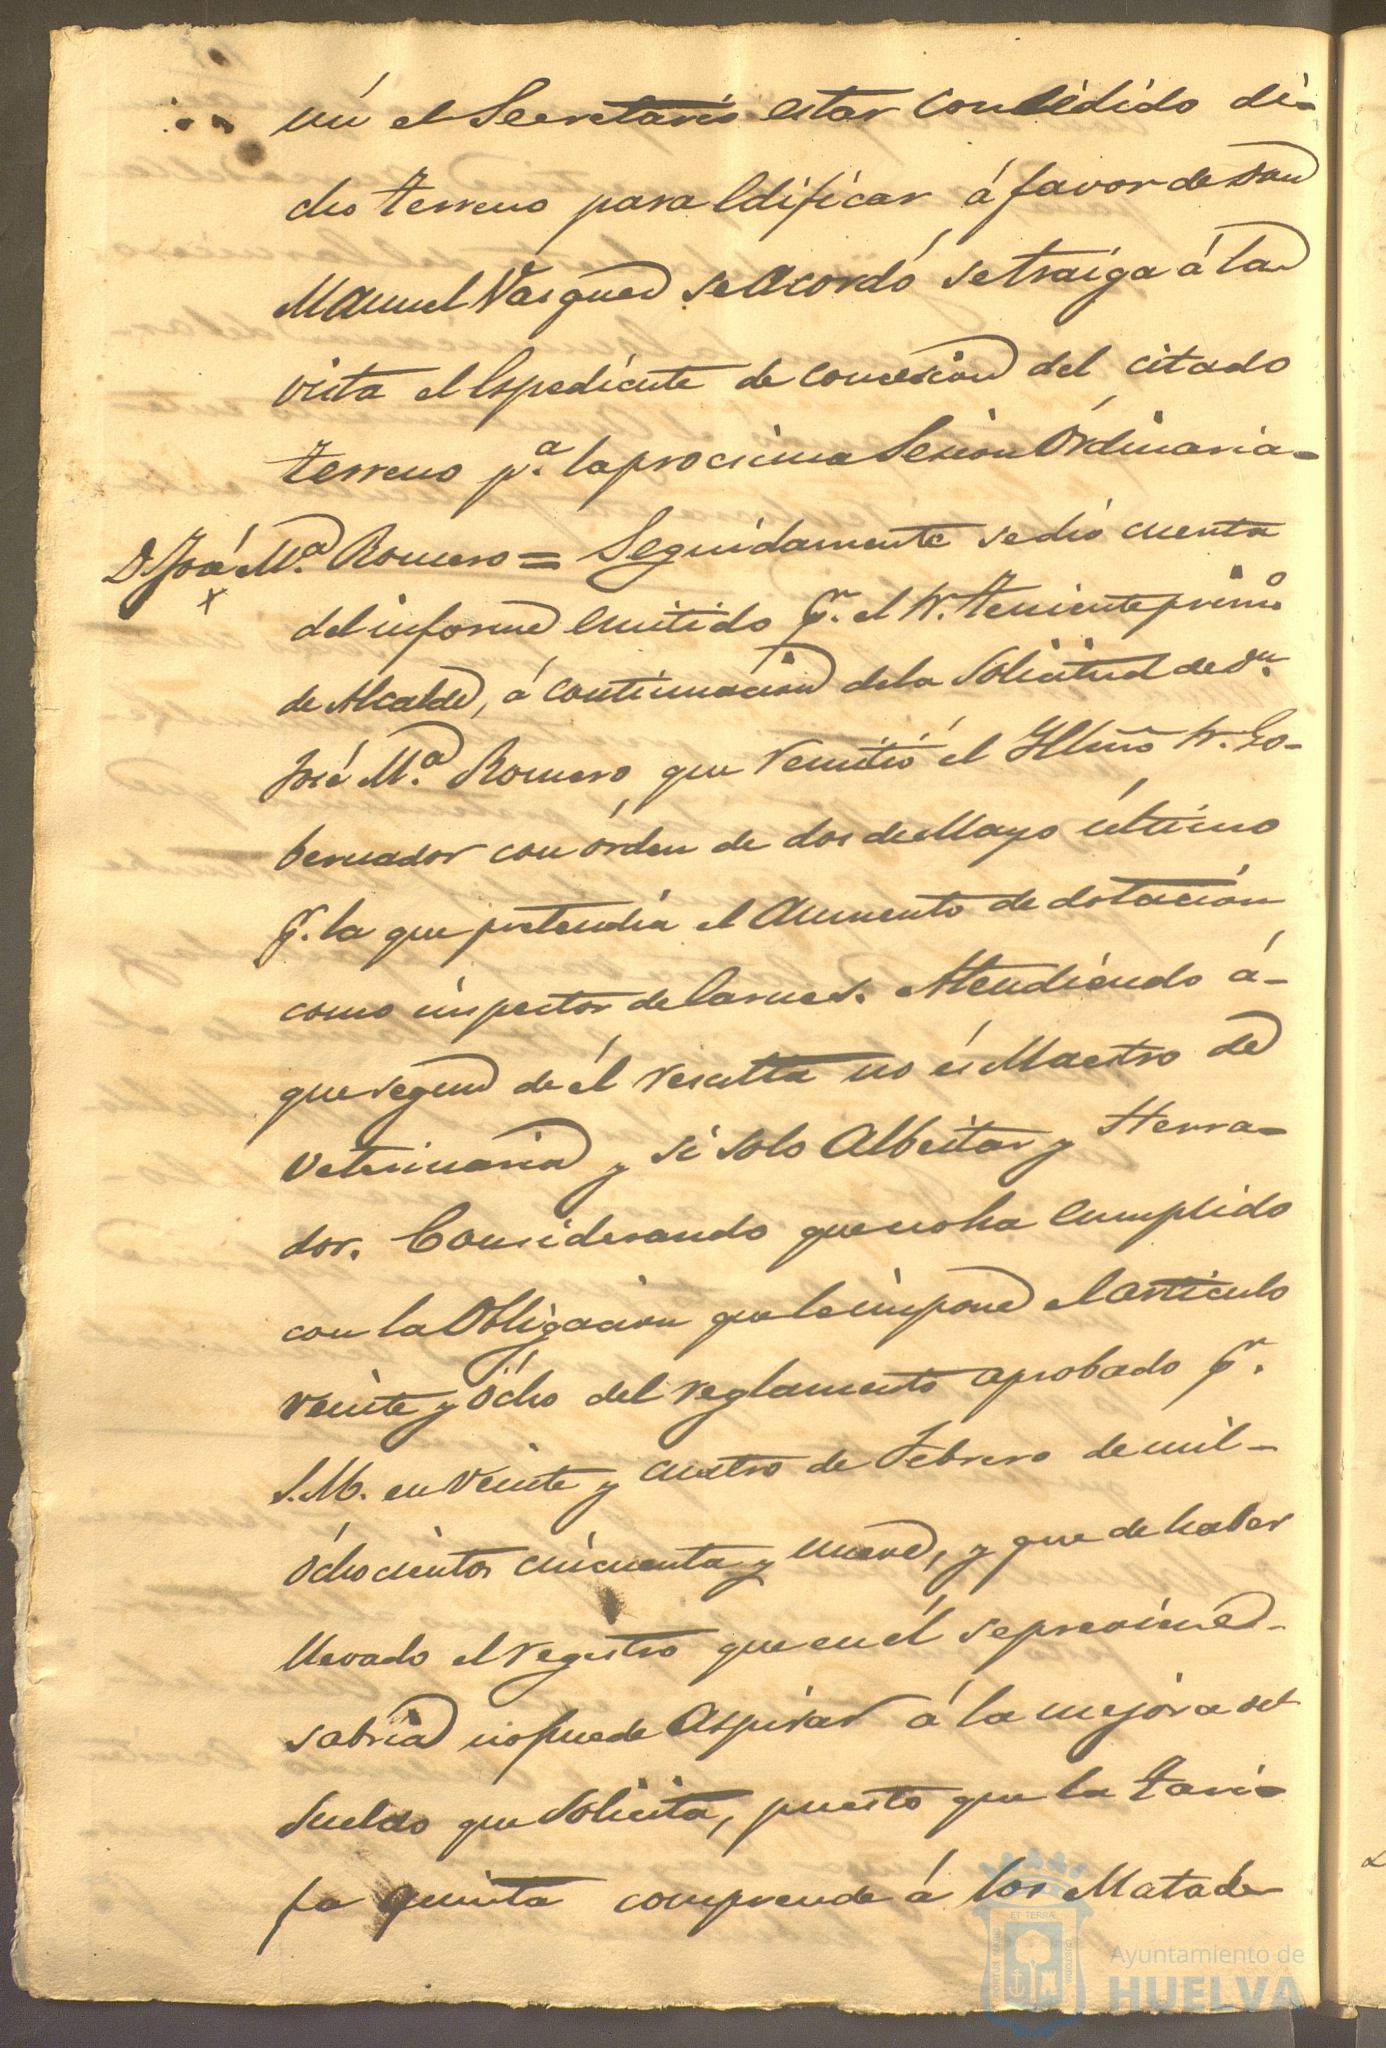 un el Secretario estar concedido di-
cho terreno para edificar á favor de Don
Manuel Vasquez se acordó se traiga á la
vista el espediente de concesion del citado
terreno p.ª la procsima Sesion Ordinaria-
D. José M.ª Romero = Seguidamente se dió cuenta
x
del informe emitido p.r el Sr. Teniente prim.o
de Alcalde, á continuacion de la Solicitud de Dn.
José M.ª Romero, que remitió el Yllmo Sr. Go-
bernador con órden de dos de Mayo último
p.r la que pretendia el aumento de dotación
como inspector de Carnes. Atendiendo á-
que segun de él resulta no és Maestro de
Veterinaria y si solo Albeitar y Herra-
dor. Considerando que no ha cumplido
con la Obligacion que le impone el articulo
veinte y ócho del reglamento aprobado p.r
S. M. en veinte y cuatro de Febrero de mil-
óchocientos cincuenta y nueve, y que de haber
llevado el registro que en él se previene-
sabria no puede aspirar á la mejora del
sueldo que solicita, puesto que la tari-
fa quinta comprende á los Matade
Ayuntamiento de
HUELVA